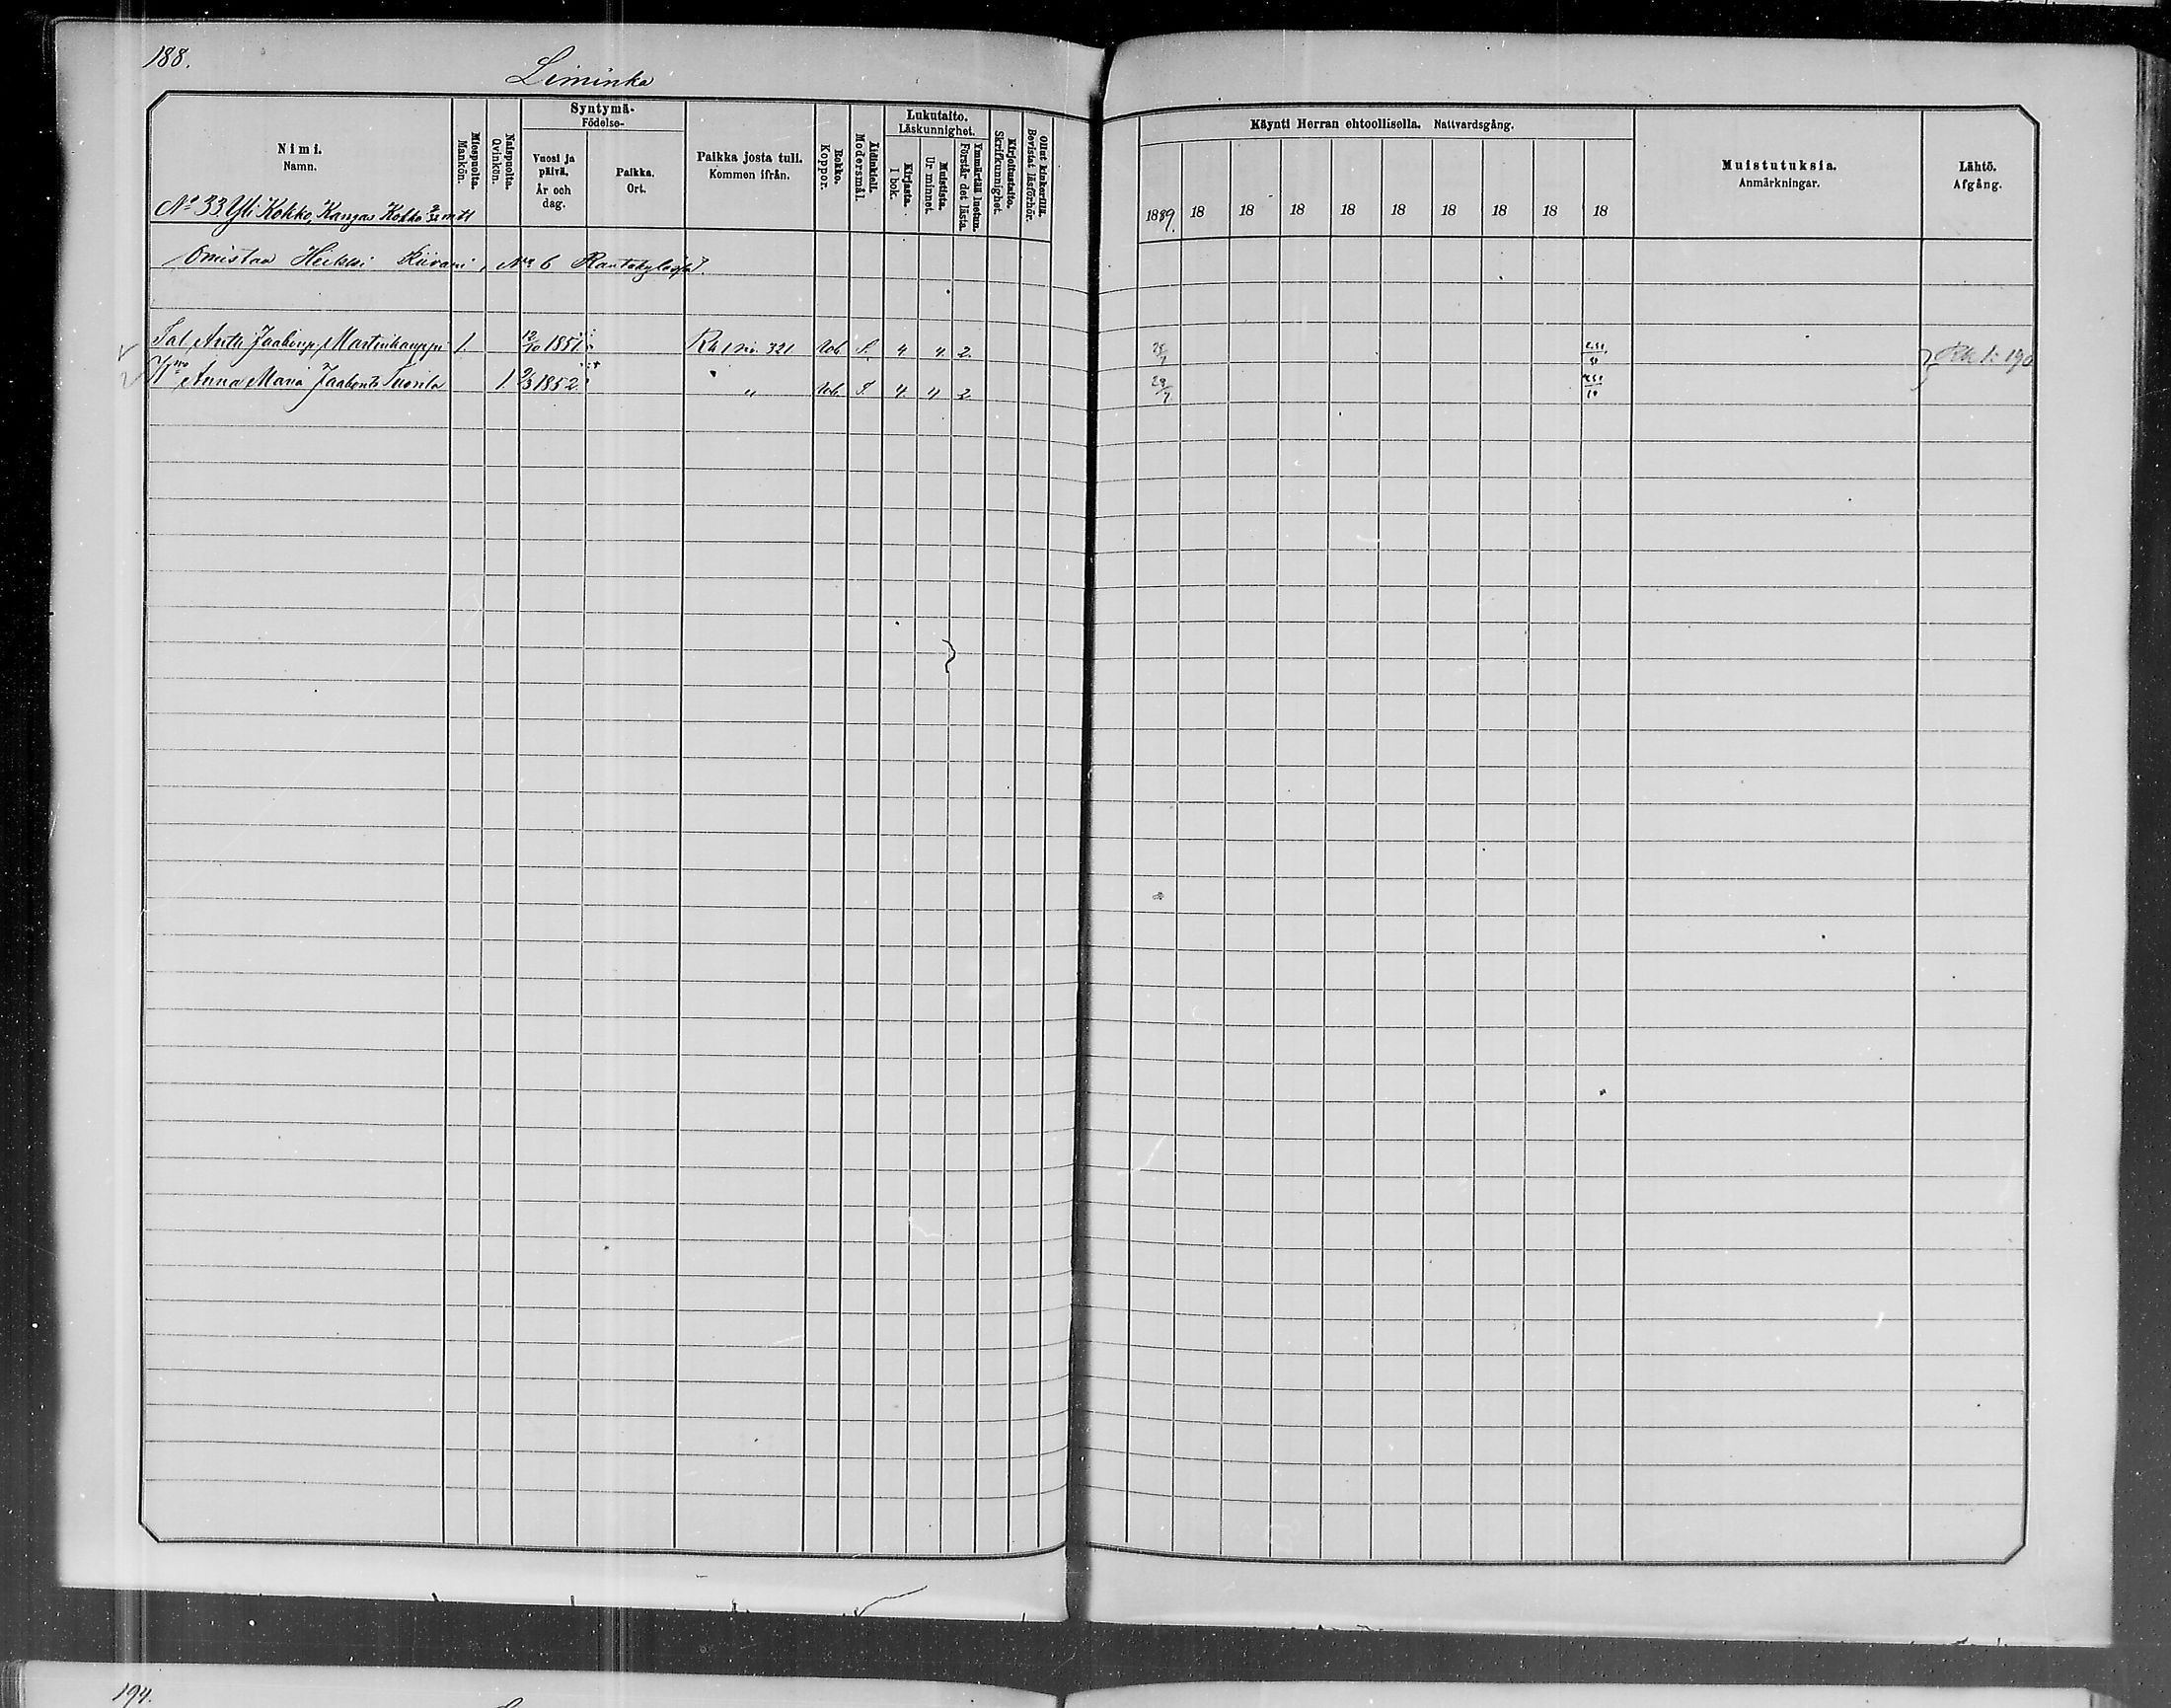 188.
Liminka
Nimi.
Namn.
Miespuolta.
Mankön.
Naispuolta.
Qvinkön.
Syntymä-
Födelse-
Vuosi ja päivä.
År och dag.
Paikka.
Ort.
Paikka josta tuli.
Kommen ifrån.
Rokko.
Koppor.
Äidinkieli.
Modersmål.
Lukutaito.
Läskunnighet.
Kirjasta.
I bok.
Muistista.
Ur minnet.
Ymmärtää luetun.
Förstår det lästa.
Kirjoitustaito.
Skrifkunnighet.
Ollut kinkerillä.
Bevistat läsförhör.
Käynti Herran ehtoollisella. Nattvardsgång.
1889. 18 18 18 18 18 18 18 18 18
Muistutuksia.
Anmärkningar.
Lähtö.
Afgång.
No 33 Yli Kokko, Kangas Kokko mtl
Omistaa Heikki Kiivari, No 6
Tal Antti Jaakonp. Martinkauppi 1. 12/10 1851 Rk 1 siv. 321 rok. S. 4 4. 2. Rk 1: 190
Vmo Anna Maria Jaakont. Tuorila 1 1852 " rok. S. 4. 4 2. 29/7
194.